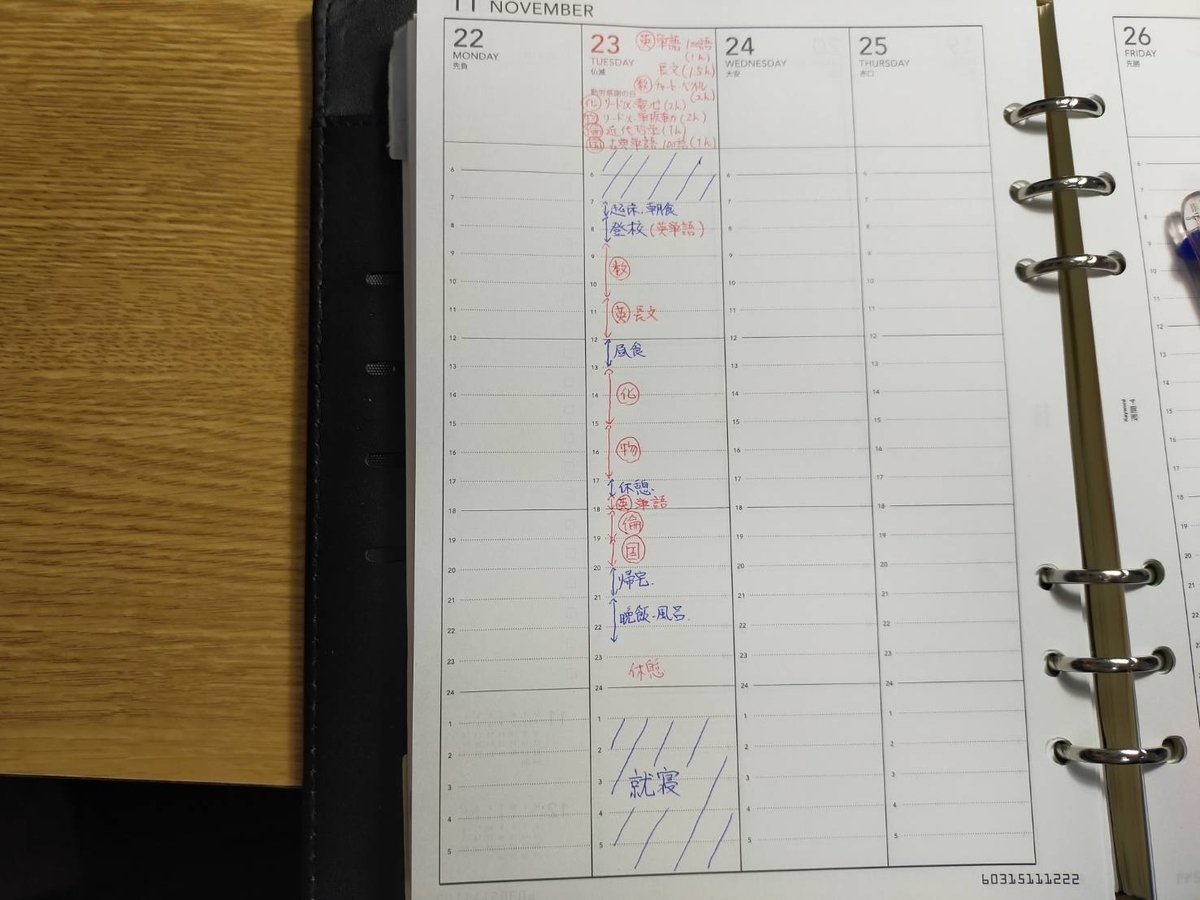 11 NOVEMBER
22
MONDAY
先負
23
TUESDAY
仏滅
勤労感謝の日
英 単語 100語
(1h)
長文 (1.5h)
数 チャート ベクトル
(2h)
化 リードα (2h)
物 リードα 単振動 (2h)
倫 近代哲学 (1h)
国 古典単語 100語 (1h)
24
WEDNESDAY
大安
25
THURSDAY
赤口
26
FRIDAY
先勝
6
7
起床、朝食
8
登校 (英単語)
9
数
10
11
英 長文
12
昼食
13
14
化
15
16
物
17
休憩
英 単語
18
倫
19
国
20
帰宅
21
晩飯・風呂
22
23
休憩
24
1
2
3
就寝
4
5
60315111222